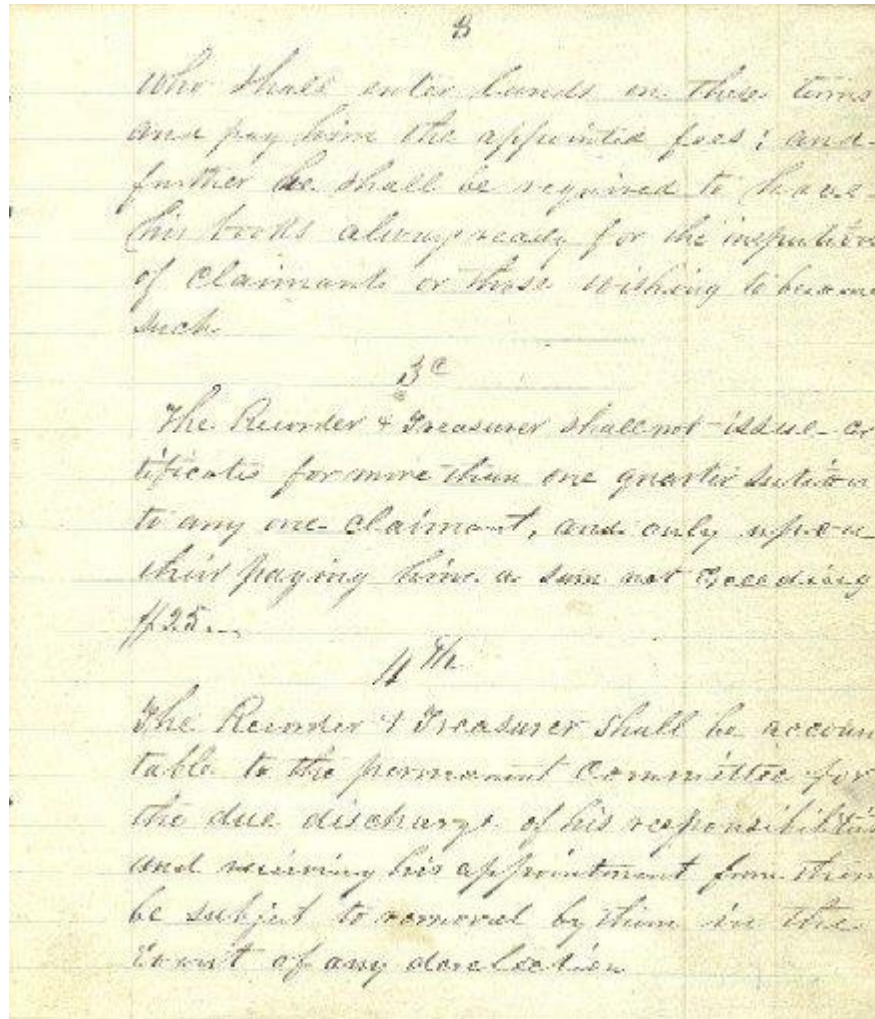 8
who shall enter lands on these terms
and pay him the appointed fees; and
further he shall be required to have
his books always ready for the inspection
of claimants or those wishing to become
such
3
The Recorder & Treasurer shall not issue cer
tificates for more than one quarter section
to any one claimant, and only upon
their paying him a sum not Exceeding
$25
4th
The Recorder & Treasurer shall be accoun
table to the permanent Committee for
the due discharge of his responsibilities
and receiving his appointment from them
be subject to removal by them in the
Event of any derelection